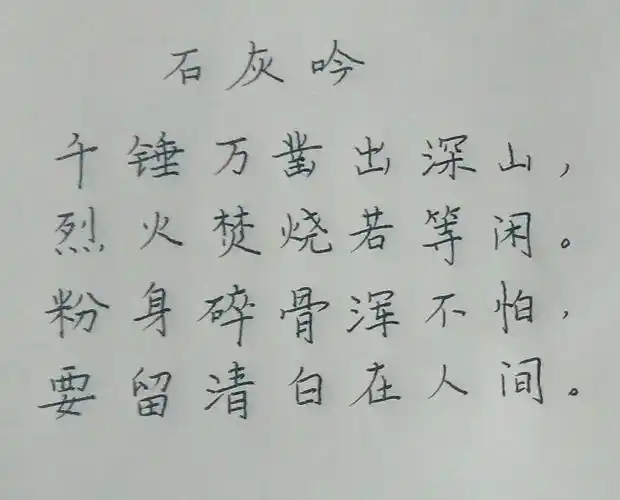 石灰吟
千锤万凿出深山，
烈火焚烧若等闲。
粉身碎骨浑不怕，
要留清白在人间。